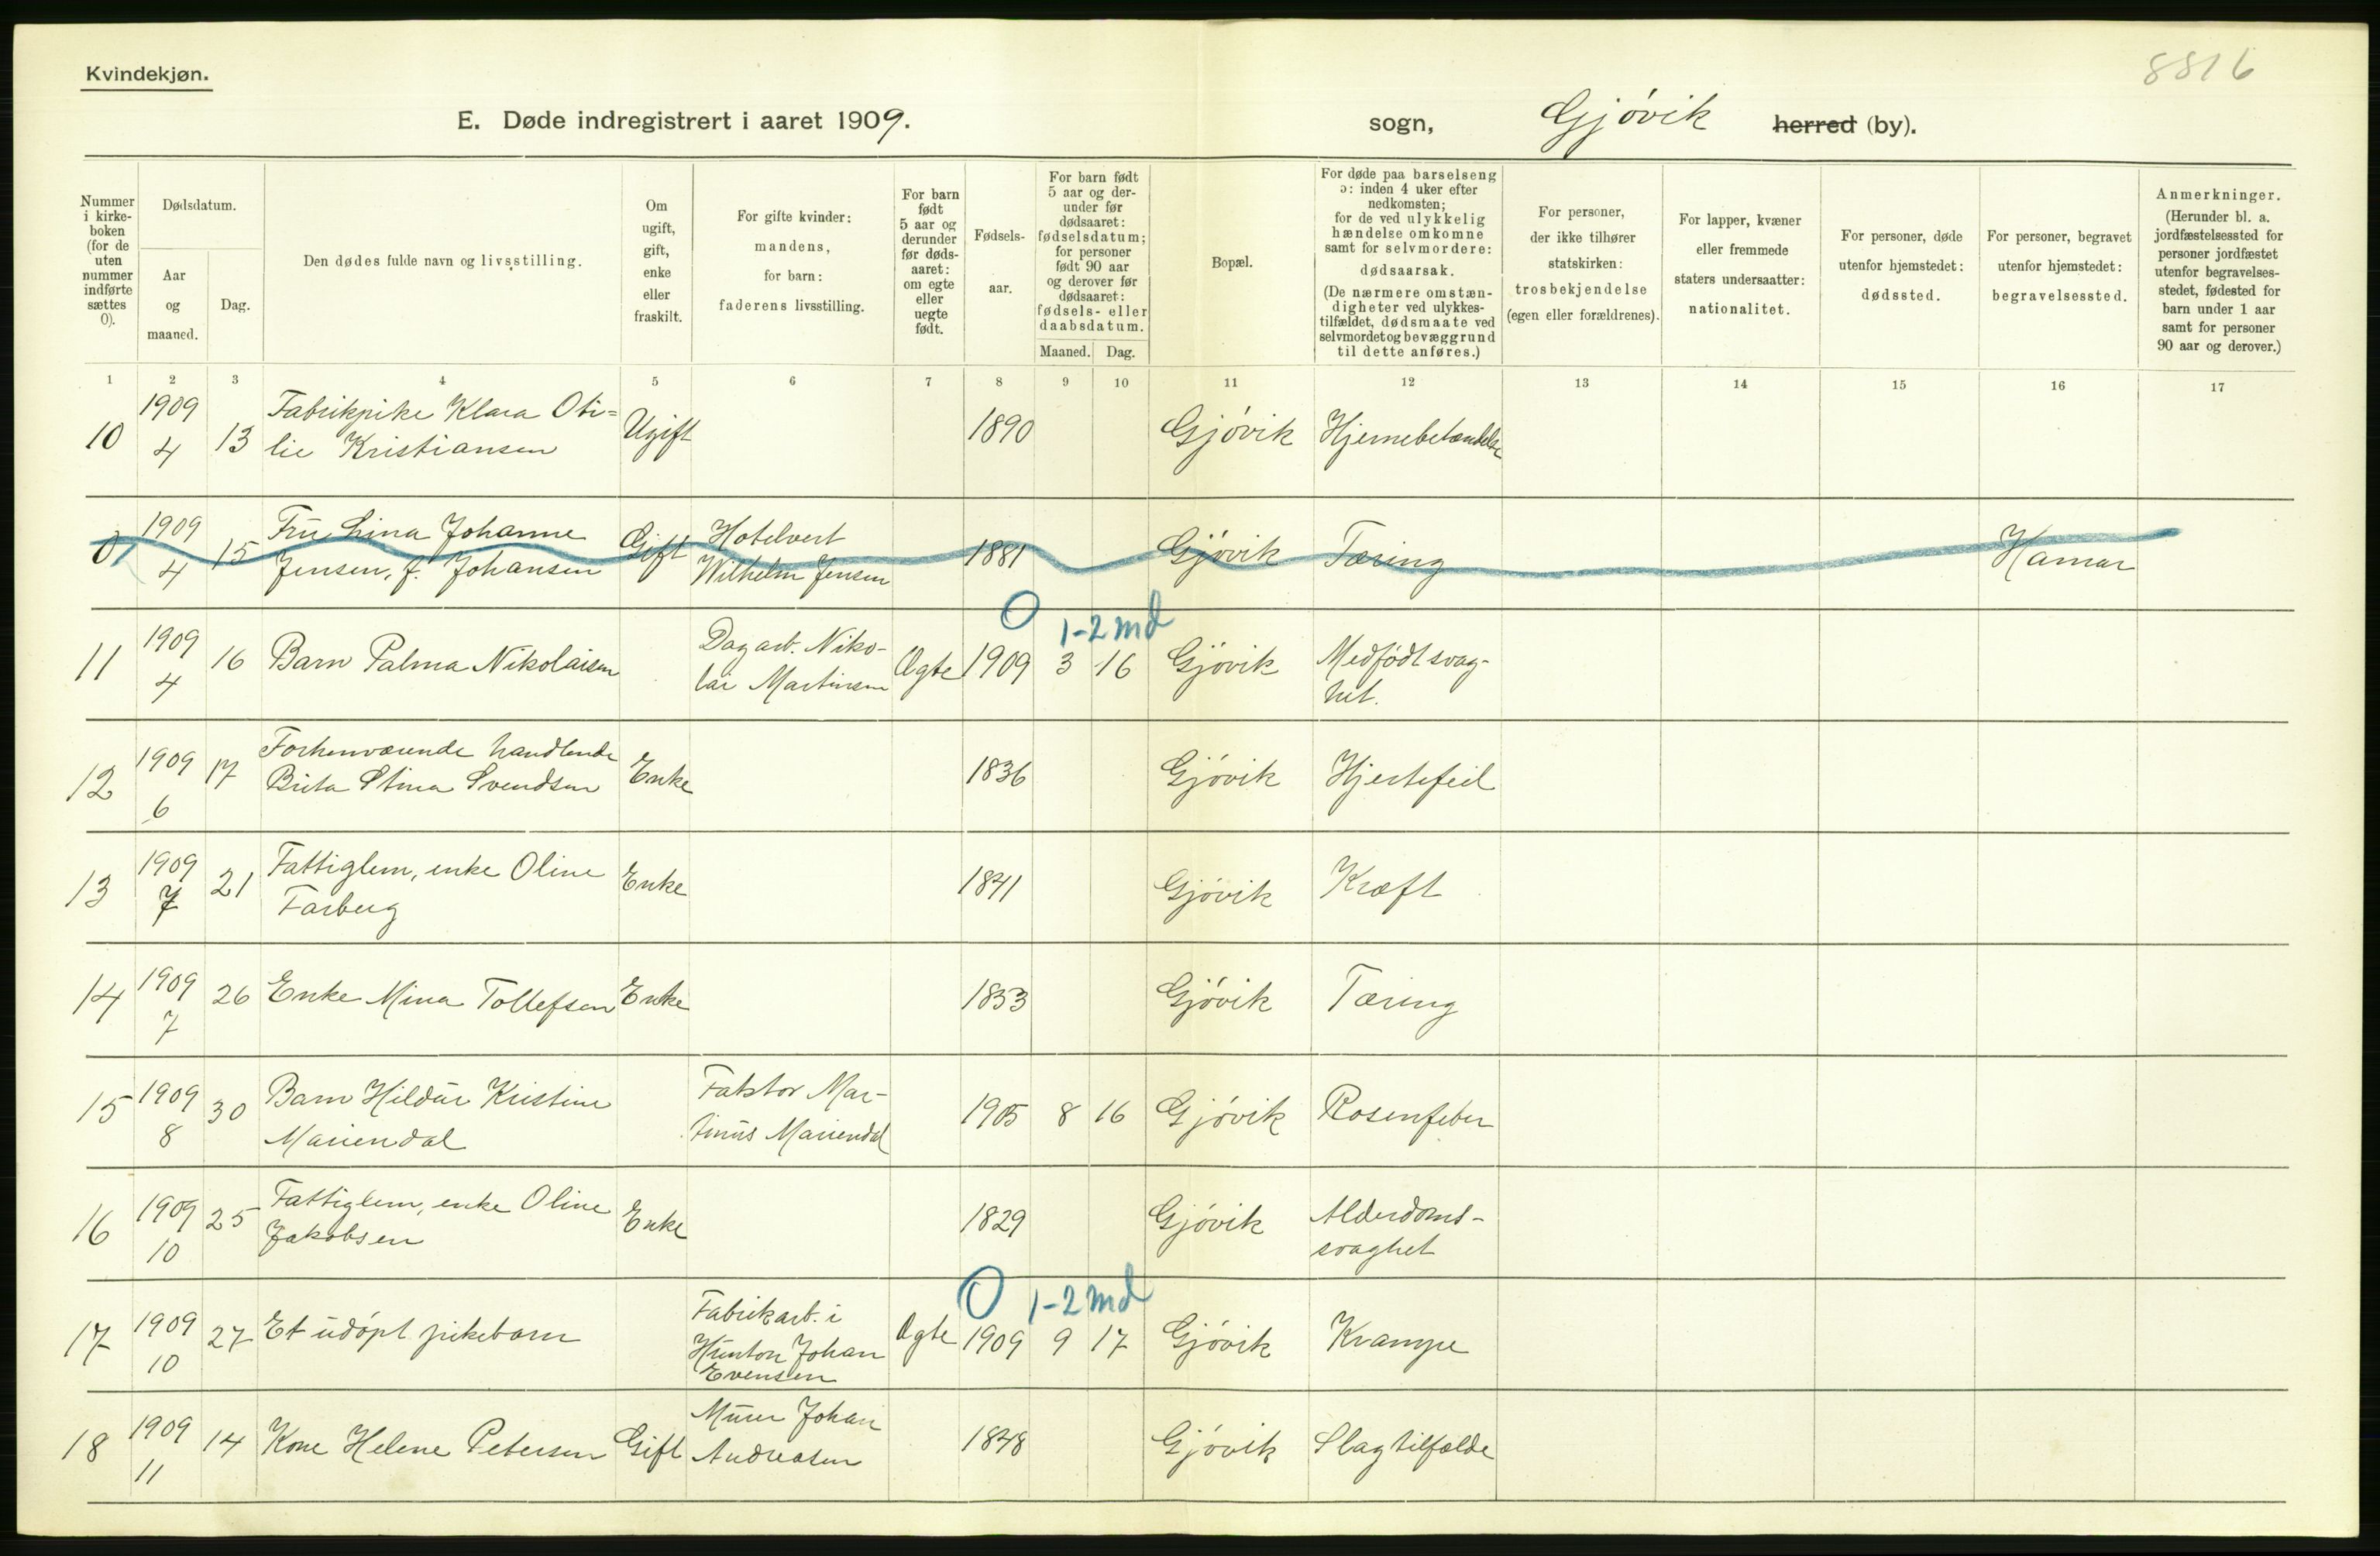 Kvindekjøn.
8816
E. Døde indregistrert i aaret 1909.
sogn, Gjøvik herred (by).
Nummer i kirke- boken (for de uten nummer indførte sættes 0).
Dødsdatum.
Aar og maaned.
Dag.
Den dødes fulde navn og livsstilling.
Om ugift, gift, enke eller fraskilt.
For gifte kvinder: mandens, for barn: faderens livsstilling.
For barn født 5 aar og derunder før døds- aaret: om egte eller uegte født.
Fødsels- aar.
For barn født 5 aar og der- under før dødsaaret: fødselsdatum; for personer født 90 aar og derover før dødsaaret: fødsels- eller daabsdatum.
Maaned. Dag.
Bopæl.
For døde paa barselseng ɔ: inden 4 uker efter nedkomsten; for de ved ulykkelig hændelse omkomne samt for selvmordere: dødsaarsak. (De nærmere omstæn- digheter ved ulykkes- tilfældet, dødsmaate ved selvmordet og bevæggrund til dette anføres.)
For personer, der ikke tilhører statskirken: trosbekjendelse (egen eller forældrenes).
For lapper, kvæner eller fremmede staters undersaatter: nationalitet.
For personer, døde utenfor hjemstedet: dødssted.
For personer, begravet utenfor hjemstedet: begravelsessted.
Anmerkninger. (Herunder bl. a. jordfæstelsessted for personer jordfæstet utenfor begravelses- stedet, fødested for barn under 1 aar samt for personer 90 aar og derover.)
1 2 3 4 5 6 7 8 9 10 11 12 13 14 15 16 17
10 1909 4 13 Fabrikpike Klara Oti= lie Kristiansen Ugift 1890 Gjøvik Hjernebetændelse
0 1909 4 15 Fru Lina Johanne Jensen, f. Johansen Gift Hotelvert Wilhelm Jensen 1881 Gjøvik Tæring Hamar
0 1-2 md
11 1909 4 16 Barn Palma Nikolaisen Dagarb. Niko- lai Martinsen Ægte 1909 3 16 Gjøvik Medfødt svag- het.
12 1909 6 17 Forhenværende handlende Brita Stina Svendsen Enke 1836 Gjøvik Hjertefeil
13 1909 7 21 Fattiglem, enke Oline Farberg Enke 1841 Gjøvik Kræft
14 1909 7 26 Enke Mina Tollefsen Enke 1853 Gjøvik Tæring
15 1909 8 30 Barn Hildur Kristine Mariendal Faktor Mar- tinus Mariendal 1905 8 16 Gjøvik Rosenfeber
16 1909 10 25 Fattiglem, enke Oline Jakobsen Enke 1829 Gjøvik Alderdoms- svaghet
0 1-2 md
17 1909 10 27 Et udøpt pikebarn Fabrikarb. i Hunton Johan Evensen Ægte 1909 9 17 Gjøvik Krampe
18 1909 11 14 Kone Helene Petersen Gift Murer Johan Andreasen 1848 Gjøvik Slagtilfælde